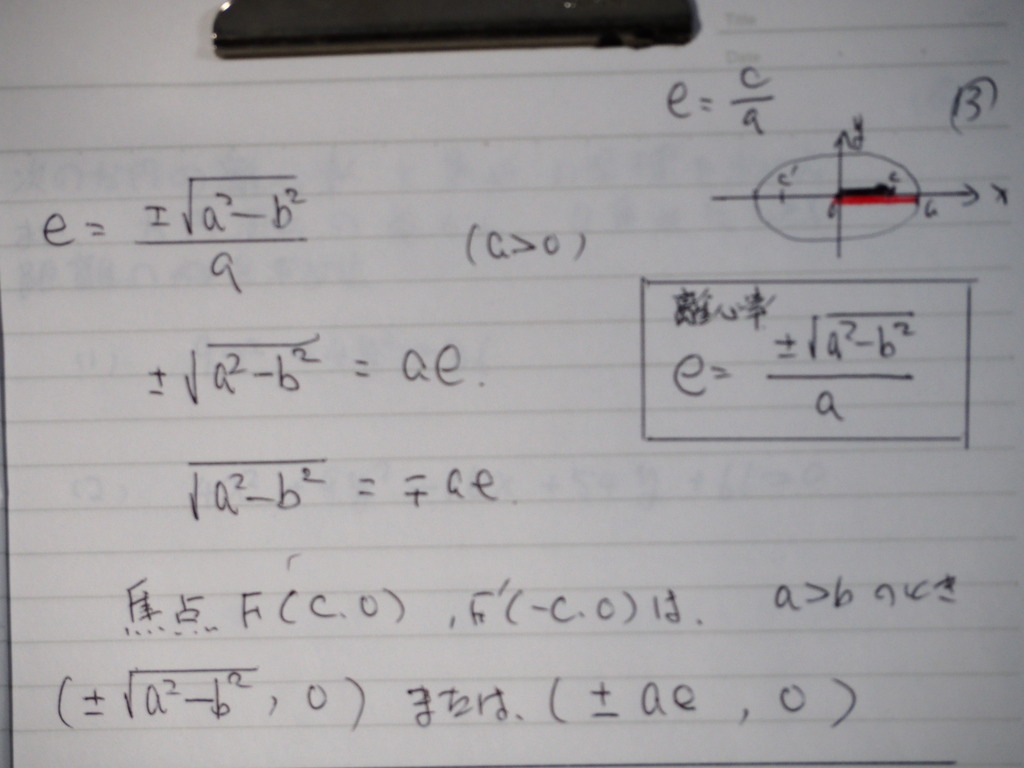 Title
Date
e = c/a
(3)
y
c' c
0 a x
e = ±√(a²-b²)/a (a>0)
離心率
e = ±√(a²-b²)/a
±√(a²-b²) = ae.
√(a²-b²) = ∓ae.
焦点 F(c.0) , F'(-c.0)は. a>bのとき
(±√(a²-b², 0) または、(±ae , 0)